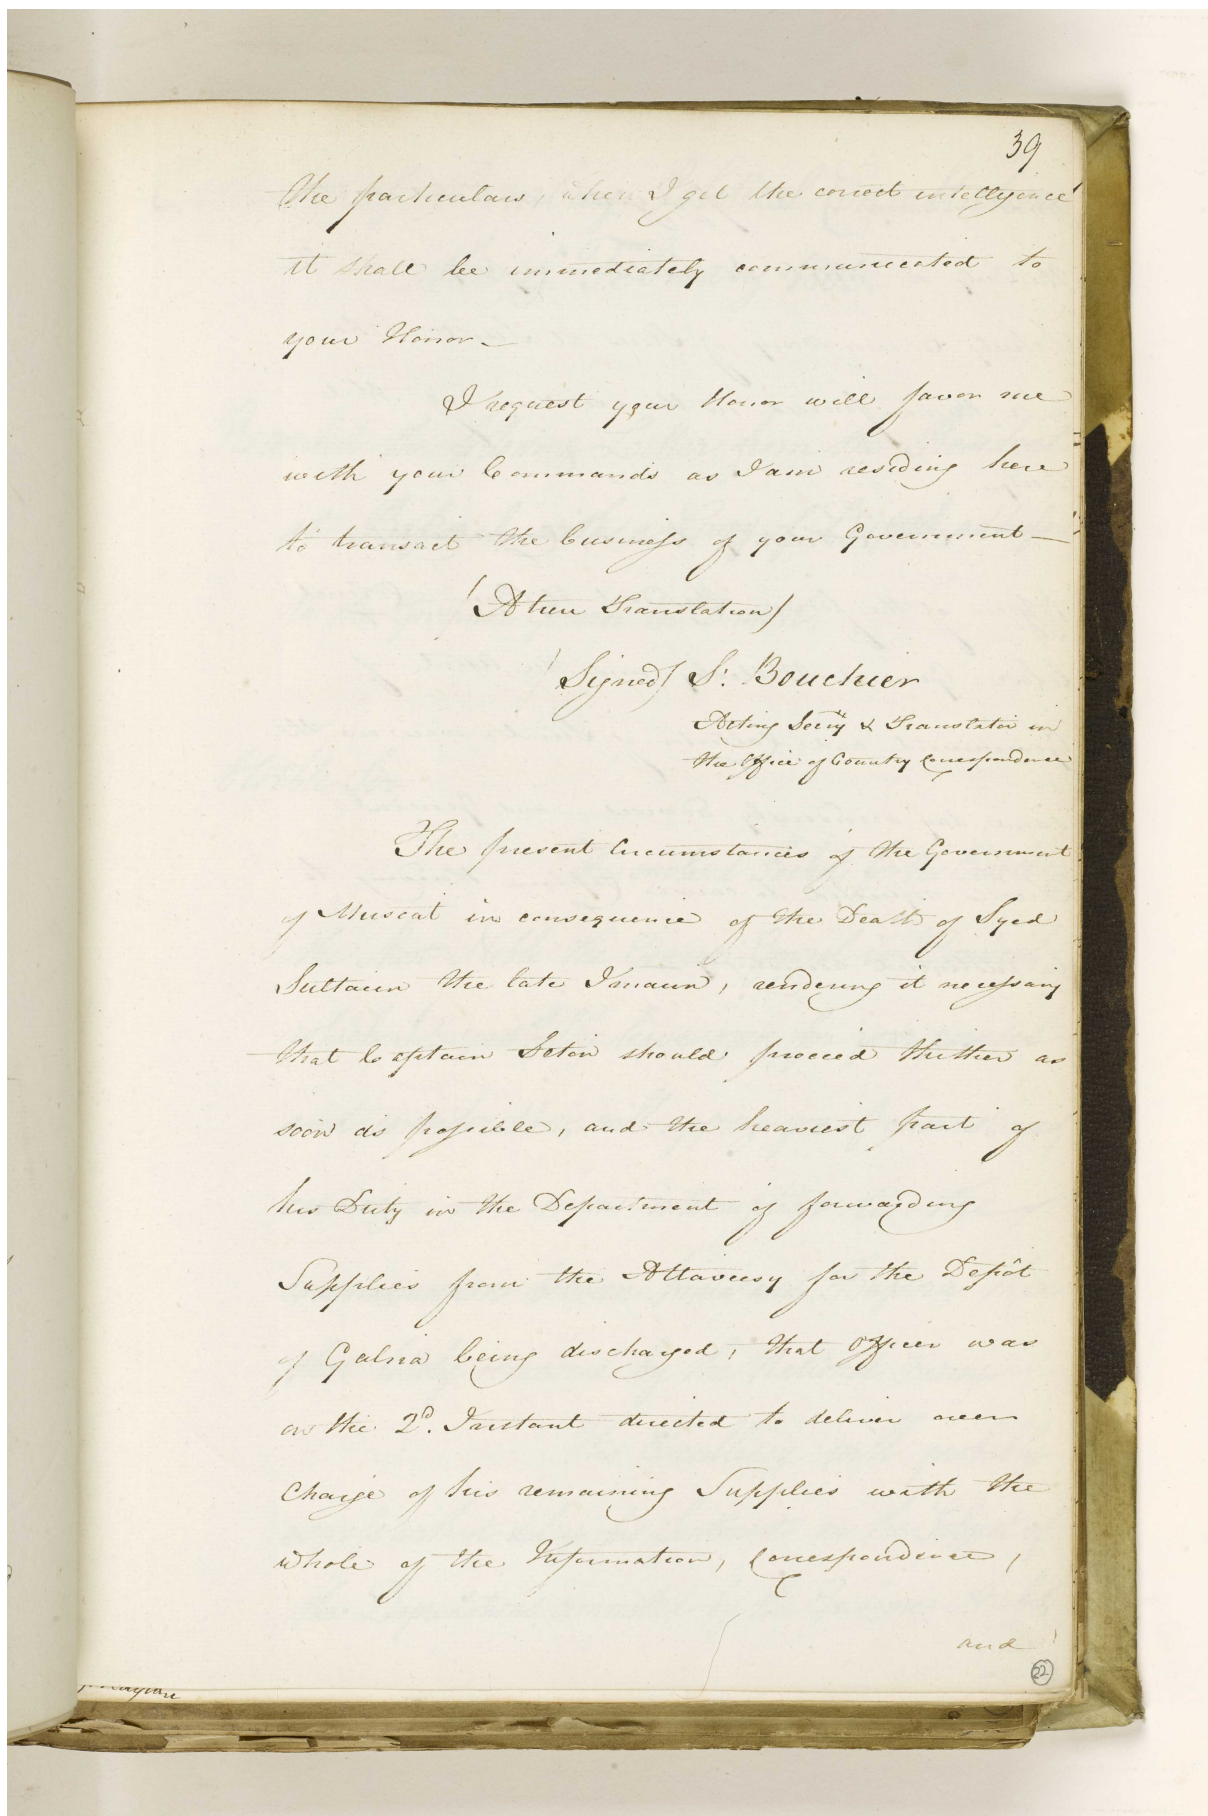 39
the particulars, when I get the correct intelligence
it shall be immediately communicated to
your Honor_
I request your Honor will favor me
with your Commands as I am residing here
to transact the business of your Government_
(A true Translation)
(Signed) S: Bouchier
Acting Secry & Translator in
the Office of Country Correspondence
The present Circumstances of the Government
of Muscat in consequence of the Death of Syed
Sultaun the late Imaun, rendering it necessary
that Captain Seton should proceed thither as
soon as possible, and the heaviest part of
his Duty in the Department of forwarding
Supplies from the Attavesy for the Depôt
of Galna being discharged, that Officer was
on the 2d. Instant directed to deliver over
Charge of his remaining Supplies with the
whole of the Information, Correspondence,
and
22